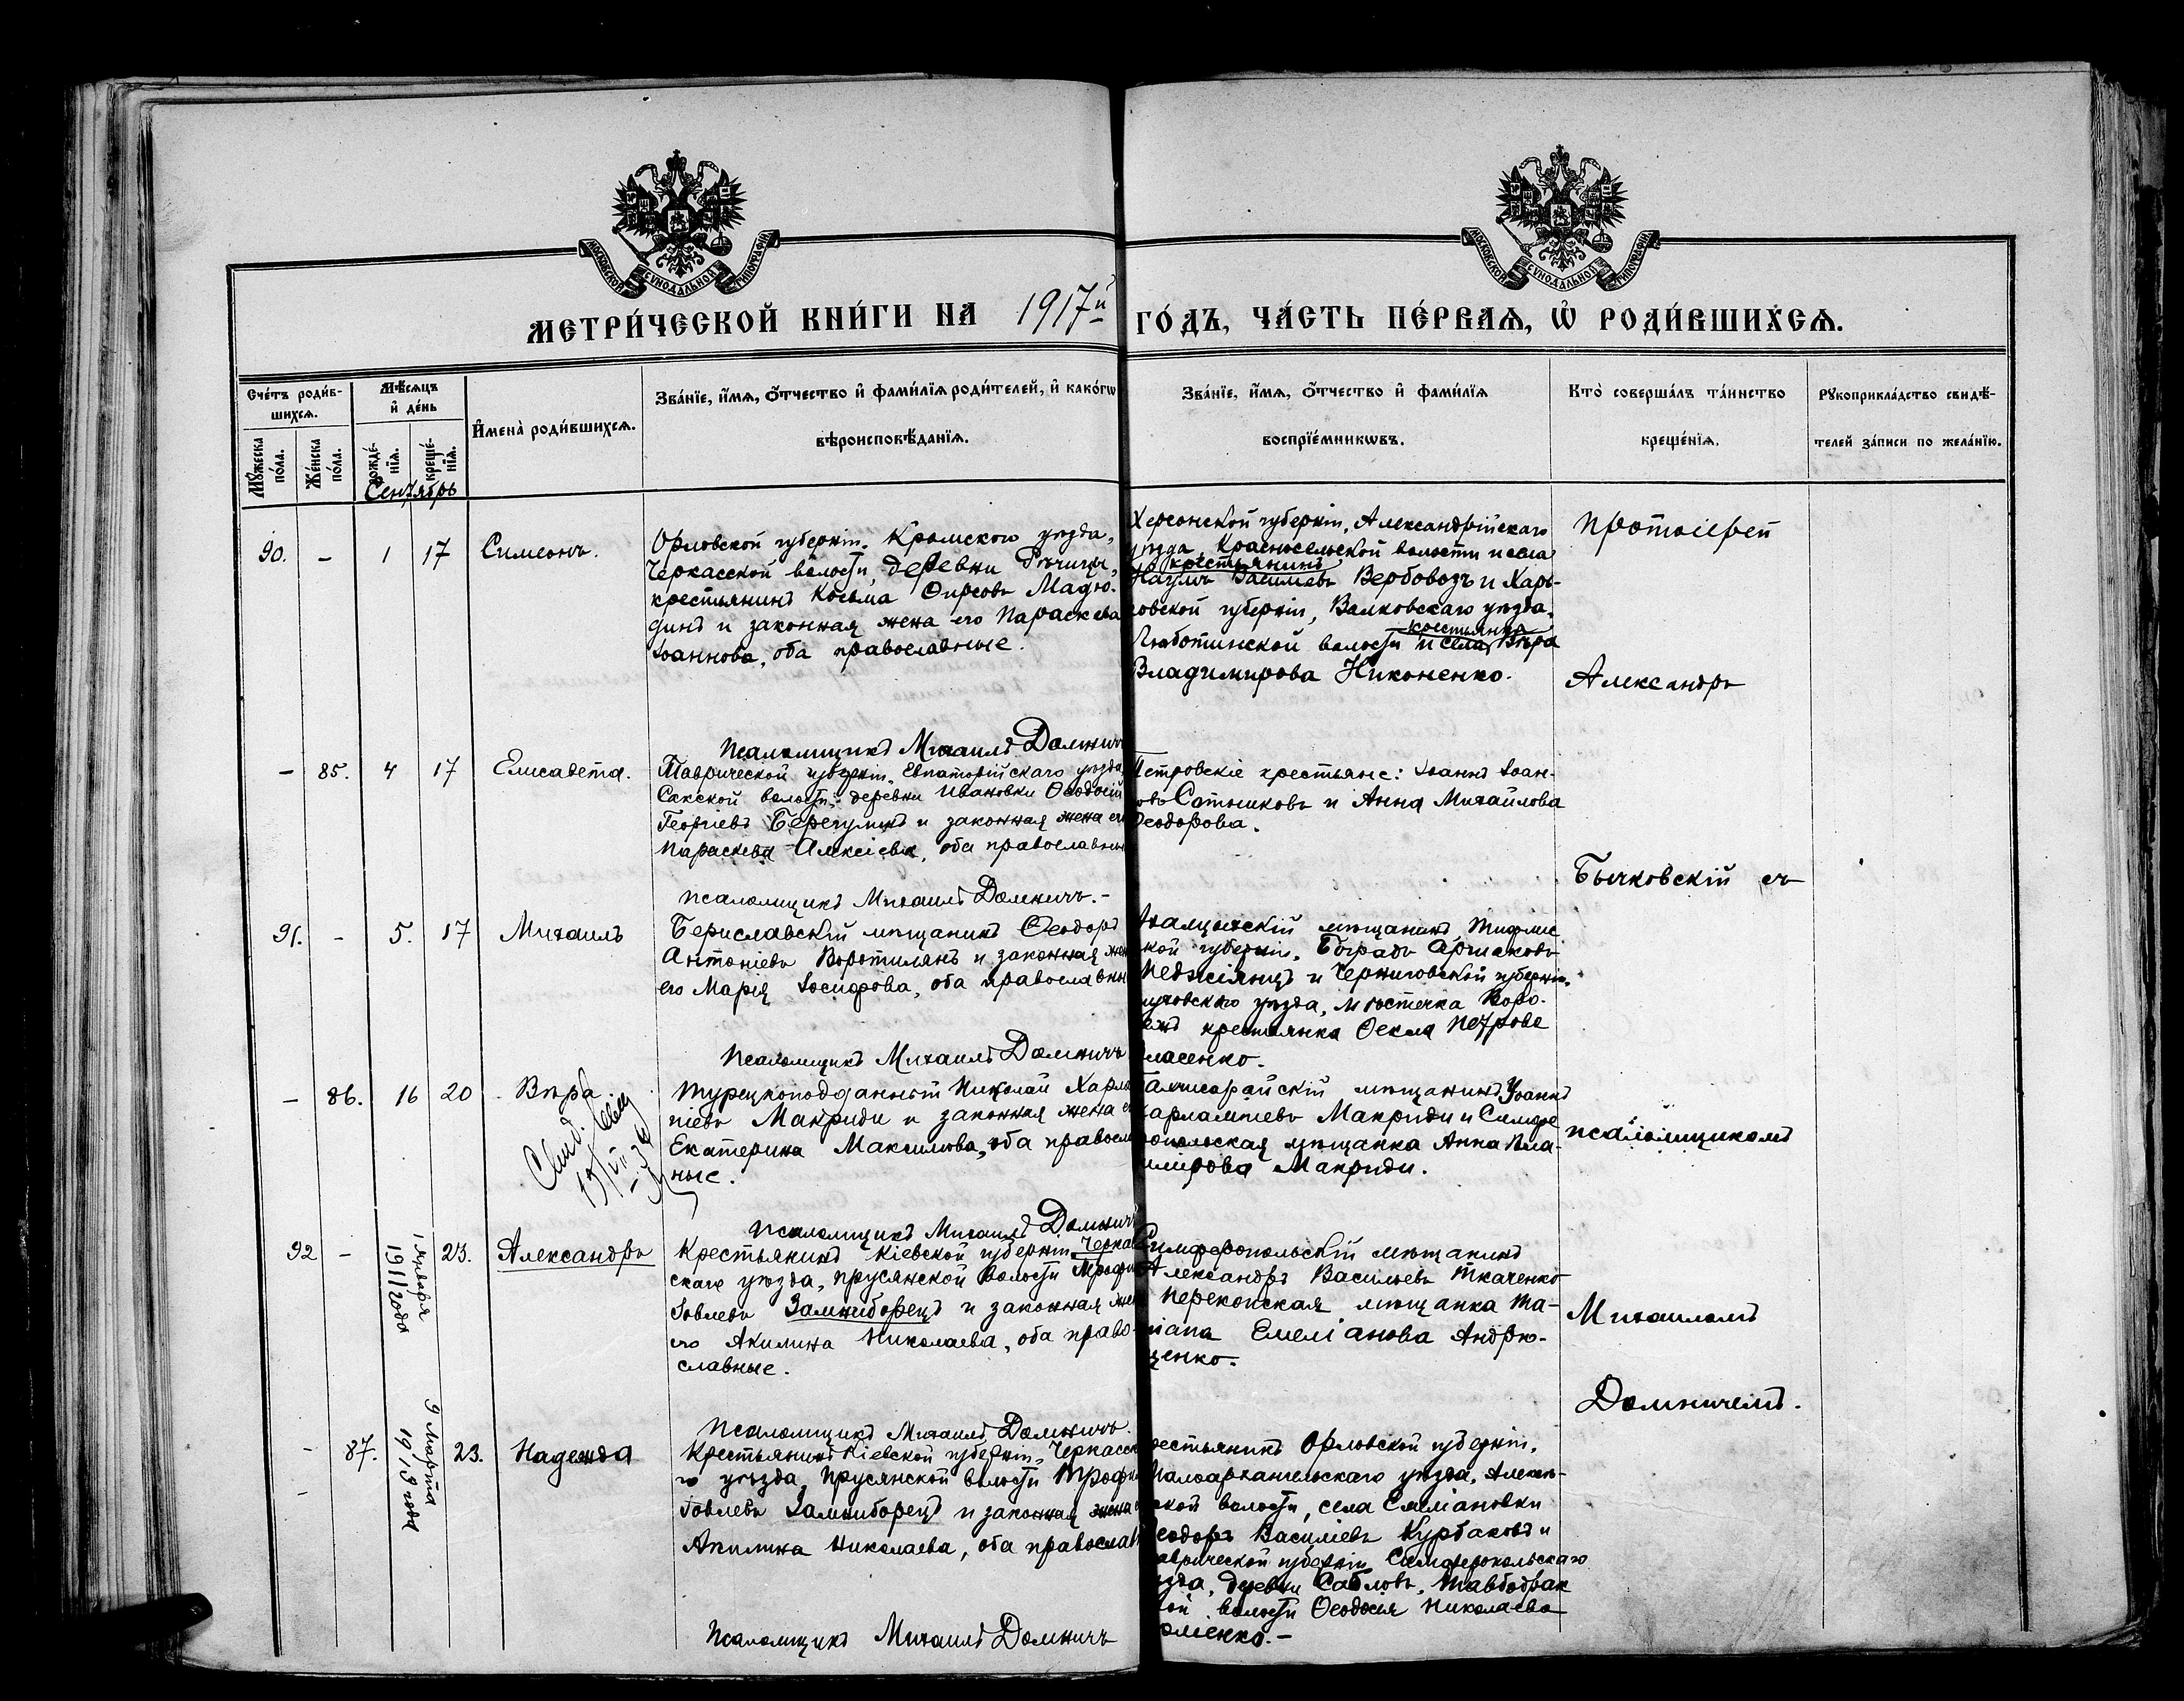 МОСКОВСКОЙ СѴНОДАЛЬНОЙ ТИПОГРАФІИ
МОСКОВСКОЙ СѴНОДАЛЬНОЙ ТИПОГРАФІИ
МЕТРИ́ЧЕСКОЙ КНИ́ГИ НА 1917й
ГО́ДЪ, ЧА́СТЬ ПЕ́РВАѦ, Ѡ҆ РОДИ́ВШИХСѦ.
Сче́тъ роди́в-
шихсѧ.
Мꙋ́жеска по́ла.
Же́нска по́ла.
Мѣ́сѧцъ
и҆ де́нь
рожде́-
нїѧ.
креще́-
нїѧ.
Сентябрь
И҆мена̀ роди́вшихсѧ.
Зва́нїе, и҆́мѧ, ѻ҆́тчество и҆ фами́лїѧ роди́телей, и҆ како́гѡ
вѣроисповѣ́данїѧ.
Зва́нїе, и҆́мѧ, ѻ҆́тчество и҆ фами́лїѧ
воспрїе́мникѡвъ.
Кто̀ соверша́лъ та́инство
креще́нїѧ.
Рꙋкоприкла́дство свидѣ́-
телей за́писи по жела́нїю.
90. – 1 17 Симеонъ.
Орловской губерніи, Кромского уѣзда,
Черкасской волости, деревни Рѣчицы,
крестьянинъ Косьма Фирсовъ Мадю-
динъ и законная жена его Параскева
Іоаннова, оба православные.
Псаломщикъ Михаилъ Домничъ
Херсонской губерніи, Александрійскаго
уѣзда, Красносельской волости и села
крестьянинъ
Наумъ Василіевъ Вербоводъ и Харь-
ковской губерніи, Валковскаго уѣзда,
крестьянка
Люботинской волости и села Вѣра
Владимирова Никоненко.
Протоіерей
Александръ
– 85. 4 17 Елисавета.
Таврической губерніи, Евпаторійскаго уѣзда,
Сакской волости, деревни Ивановки Ѳеодосій
Георгіевъ Берегулинъ и законная жена его
Параскева Алексіева, оба православны
Псаломщикъ Михаилъ Домничъ.–
Петровскіе крестьяне: Іоаннъ Іоан-
овъ Сотниковъ и Анна Михайлова
Ѳеодорова.
Бычковскій съ
91. – 5. 17 Михаилъ
Бериславскій мѣщанинъ Ѳеодоръ
Антоніевъ Воротилянъ и законная жен
его Марія Іосифова, оба православны
Псаломщикъ Михаилъ Домничъ
мѣщанинъ, Тифлис
кой губерніи, Баградъ
и Черниговской губерніи,
уѣзда, мѣстечка Воро-
ежъ крестьянка Ѳекла Петрова
ласенко.
– 86. 16 20 Вѣра
Турецкоподданный Николай Харлам
піевъ Макриди и законная жена е
Екатерина Максимова, оба правосл
ные.
Псаломщикъ Михаилъ Домничъ
мѣщанинъ Іоаннъ
арлампіевъ Макриди и Симфе
опольская мѣщанка Анна Вла-
иміровa Макриди.
псаломщикомъ
92 – 1 Января 1911 года 23. Александръ
Крестьянинъ Кіевской губерніи, Черкас
скаго уѣзда, Прусянской волости Трофи
Іовлевъ Замниборецъ и законная жен
его Акилина Николаева, оба право-
славные.
Псаломщикъ Михаилъ Домничъ.
Симферопольскій мѣщанинъ
Александръ Васильевъ Ткаченко
Перекопская мѣщанка Та-
тіана Емеліанова Андрю-
щенко.
Михаиломъ
Домничемъ.
– 87. 9 Марта 1913 года 23. Надежда
Крестьянинъ Кіевской губерніи, Черкасск
го уѣзда, Прусянской волости Трофи
Іовлевъ Замниборецъ и законная жена
Акилина Николаева, оба православ
Псаломщикъ Михаилъ Домничъ
рестьянинъ Орловской губерніи,
Малоархангельскаго уѣзда, Алексѣ-
ской волости, села Емеліановки
Ѳеодоръ Василіевъ Курбаковъ и
аврической губерніи Симферопольскаго
ѣзда, деревни Сабловъ,
ой волости Ѳеодосія Николаева
оменко.–